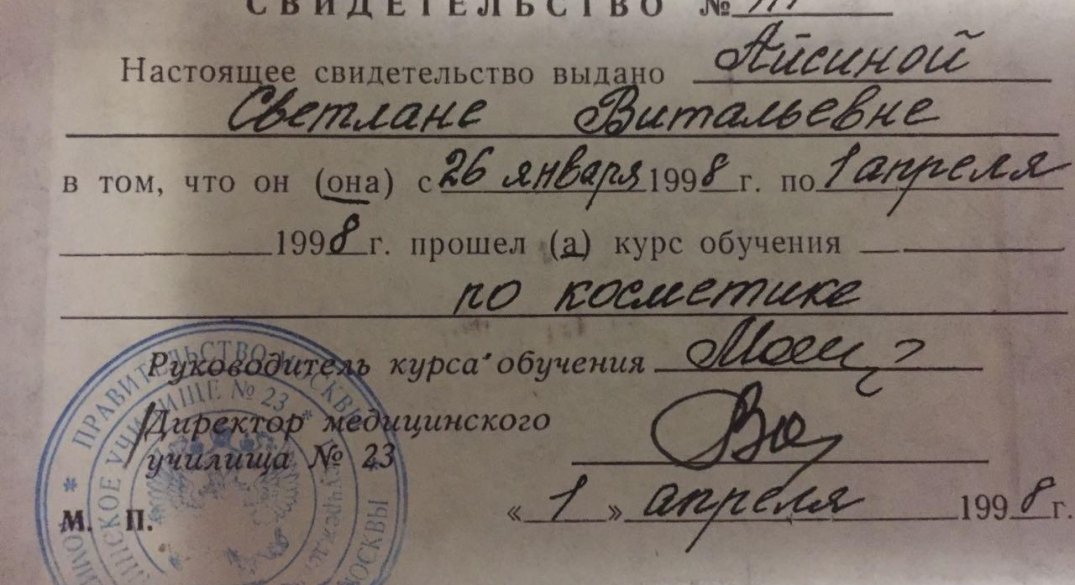 СВИДЕТЕЛЬСТВО №
Настоящее свидетельство выдано Айсиной
Светлане Витальевне
в том, что он (она) с 26 января 1998 г. по 1 апреля
1998 г. прошел (а) курс обучения
по косметике
Руководитель курса обучения
Директор медицинского
училища № 23
М. П.
« 1 » апреля 1998 г.
ПРАВИТЕЛЬСТВО МОСКВЫ
УЧИЛИЩЕ № 23
МОСКВЫ